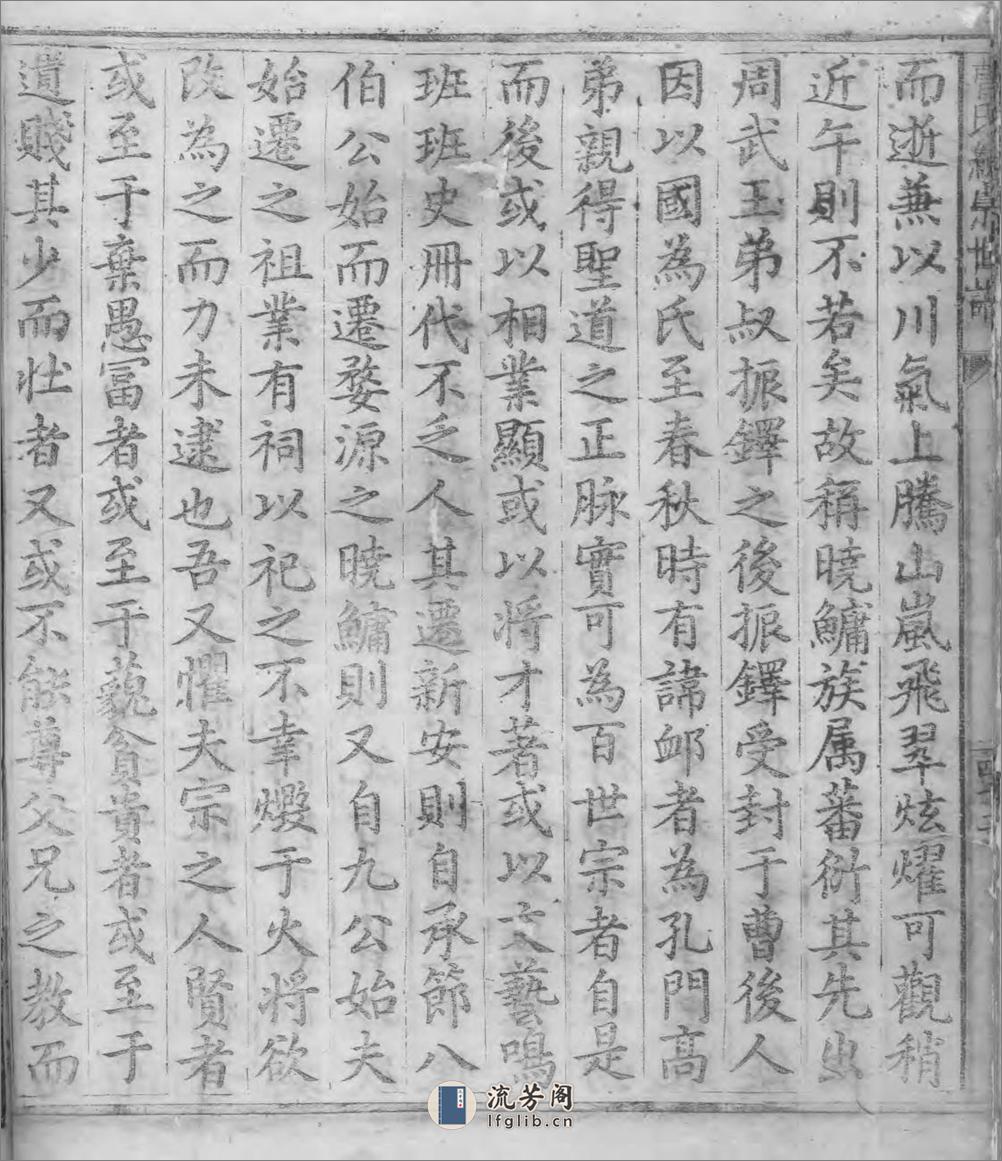 曹氏統宗世譜
而逝兼以川氣上騰山嵐飛翠炫燿可觀稍
近午則不若矣故稱曉鱅族属蕃衍其先出
周武王弟叔振鐸之後振鐸受封于曹後人
因以國為氏至春秋時有諱邺者為孔門高
弟親得聖道之正脉實可為百世宗者自是
而後或以相業顯或以將才著或以文藝鳴
班班史冊代不乏人其遷新安則自承節八
伯公始而遷婺源之曉鱅則又自九公始夫
始遷之祖業有祠以祀之不幸燬于火將欲
改為之而力未逮也吾又懼夫宗之人賢者
或至于棄愚冨者或至于藐貧貴者或至于
遺賤其少而壯者又或不能尊父兄之教而
流芳阁
lfglib.cn